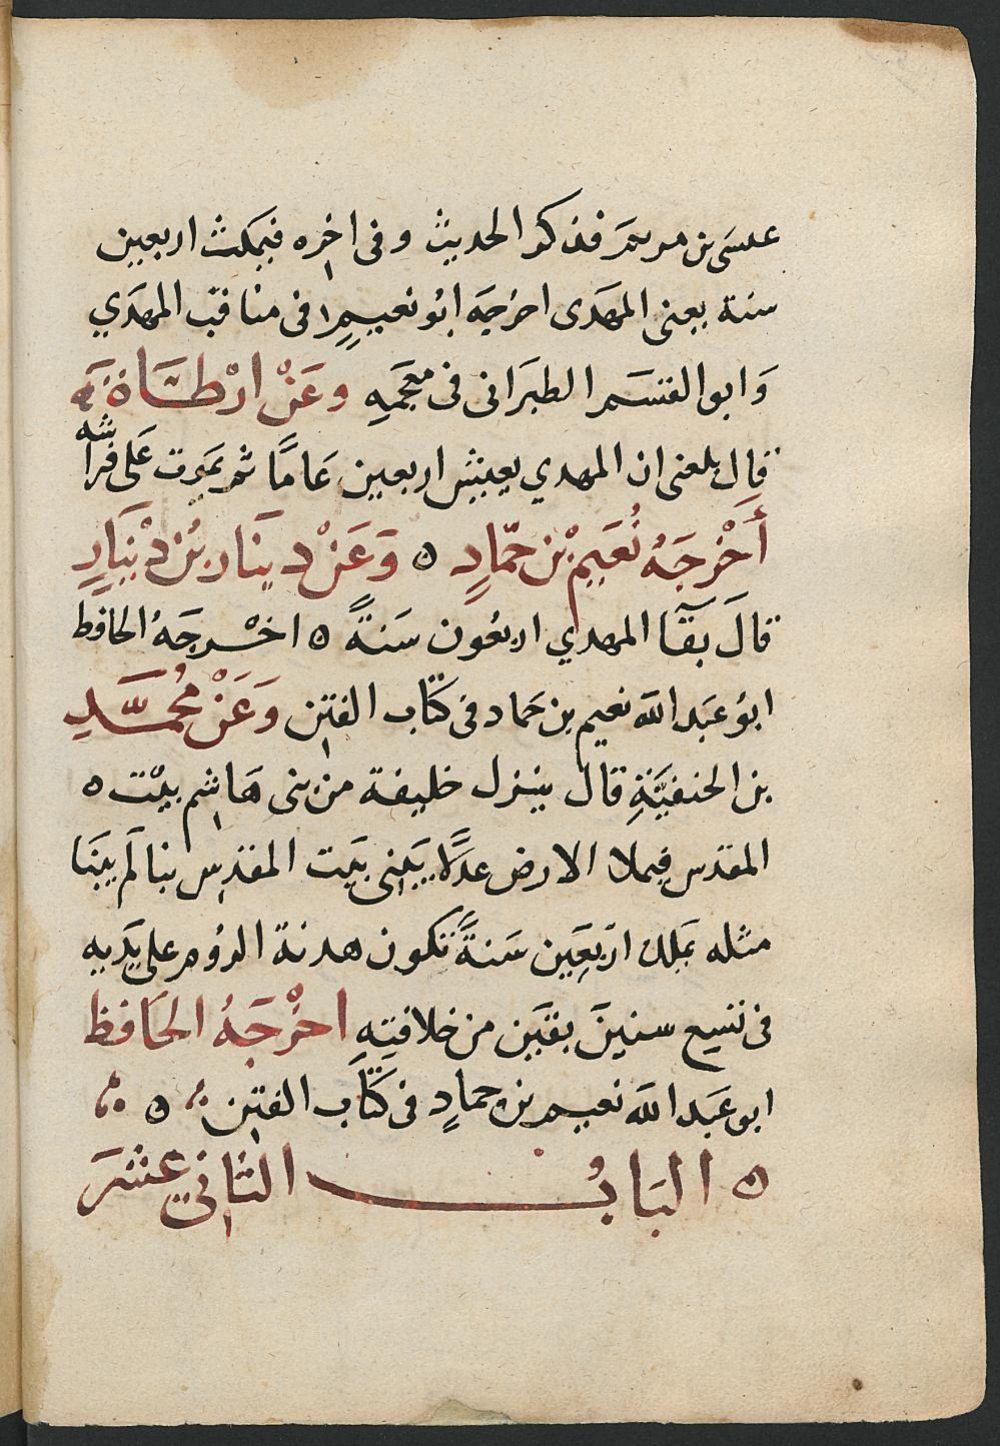 عيسى بن مريم فذكر الحديث وفى اخره فيمكث اربعين
سنة يعنى المهَدى اخرجَه ابُو نعيمٍ فى مناقب المهَدي
وَابو القسَم الطبرَانى فى معجَمهِ وعَنْ ارْطَاةَ
قال بلغنى ان المهدي يعيش اربعين عَامًا ثم يمَوت عَلى فراشه
أَخْرجَهُ نُعَيم بْن حمّادٍ ه وَعَنْ دينَار بْن دْينَارٍ
قالَ بقَآ المهدي اربعُون سَنةً ه اخْرجَهُ الحافظ
ابوُ عبَد الله نعيم بن حَماد فى كتَاب الفتن وَعَنْ مُحمَّدِ
بن الحنفيَّةِ قال ينزل خليفة من بنى هَاشم بيْت ه
المقدس فيملا الارض عدلًا يبَنى بيَت المقدس بنا لَم يبنَا
مثله يملك ارَبعَين سَنةً تكون هدنة الروُم على يدَيه
فى تسع سنينَ بقيَن من خلافتِهِ اخْرجَهُ الحَافظ
ابو عبَد الله نعيم بن حمادٍ فى كتَاب الفتن ه
ه البَابُ الثانى عشرَ